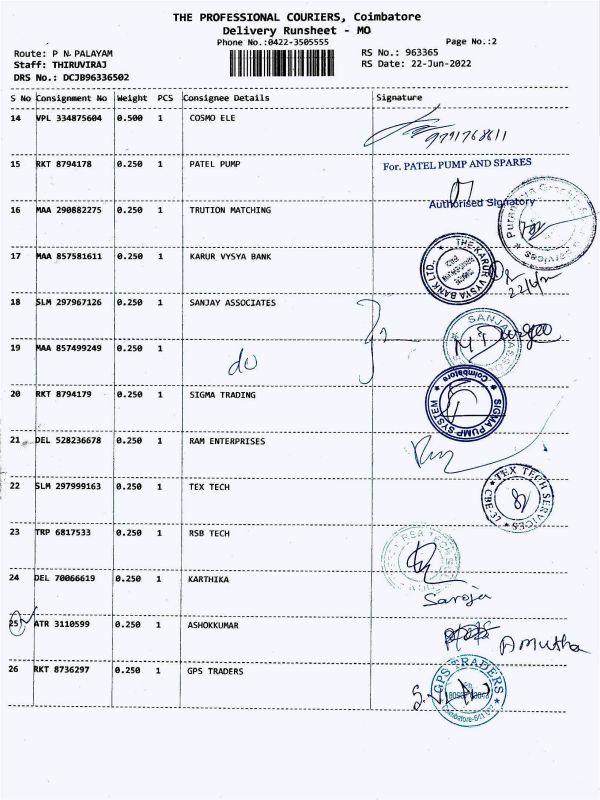 THE PROFESSIONAL COURIERS, Coimbatore
Delivery Runsheet - MO
Phone No.:0422-3505555
Page No.:2
Route: P N PALAYAM
RS No.: 963365
Staff: THIRUVIRAJ
RS Date: 22-Jun-2022
DRS No.: DCJB96336502
S No Consignment No Weight PCS Consignee Details Signature
14 VPL 334875604 0.500 1 COSMO ELE
9791768611
15 RKT 8794178 0.250 1 PATEL PUMP For. PATEL PUMP AND SPARES
Authorised Signatory
16 MAA 290882275 0.250 1 TRUTION MATCHING
17 MAA 857581611 0.250 1 KARUR VYSYA BANK THE KARUR VYSYA BANK LTD.
18 SLM 297967126 0.250 1 SANJAY ASSOCIATES
19 MAA 857499249 0.250 1 do
20 RKT 8794179 0.250 1 SIGMA TRADING SIGMA PUMP SYSTEM Coimbatore
21 DEL 528236678 0.250 1 RAM ENTERPRISES
22 SLM 297999163 0.250 1 TEX TECH TEX TECH SERVICES
23 TRP 6817533 0.250 1 RSB TECH
24 DEL 70066619 0.250 1 KARTHIKA Saroja
25 ATR 3110599 0.250 1 ASHOKKUMAR Amutha
26 RKT 8736297 0.250 1 GPS TRADERS GPS TRADERS